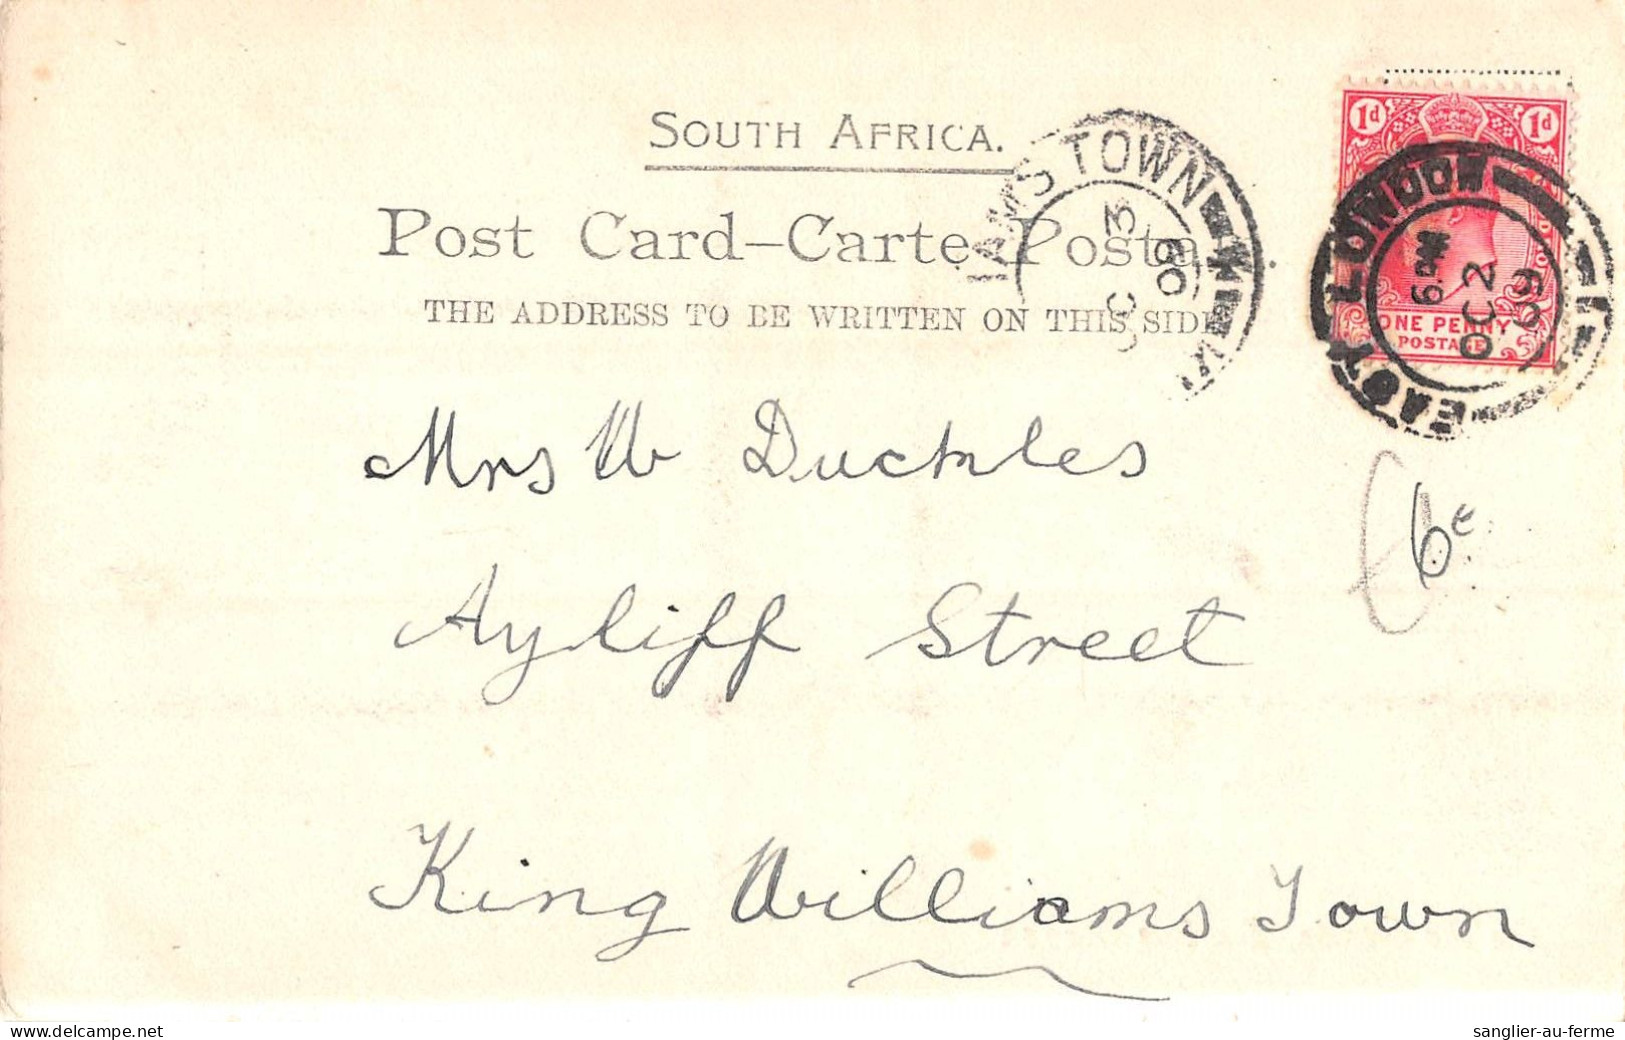 SOUTH AFRICA.
Post Card—Carte Posta
THE ADDRESS TO BE WRITTEN ON THIS SIDE
IAMS TOWN
OC 3
09
1d 1d
ONE PENNY
POSTAGE
EAST LONDON
6 PM
OC 2
09
Mrs W Duckles
6€
Ayliff Street
King Williams Town
www.delcampe.net
sanglier-au-ferme